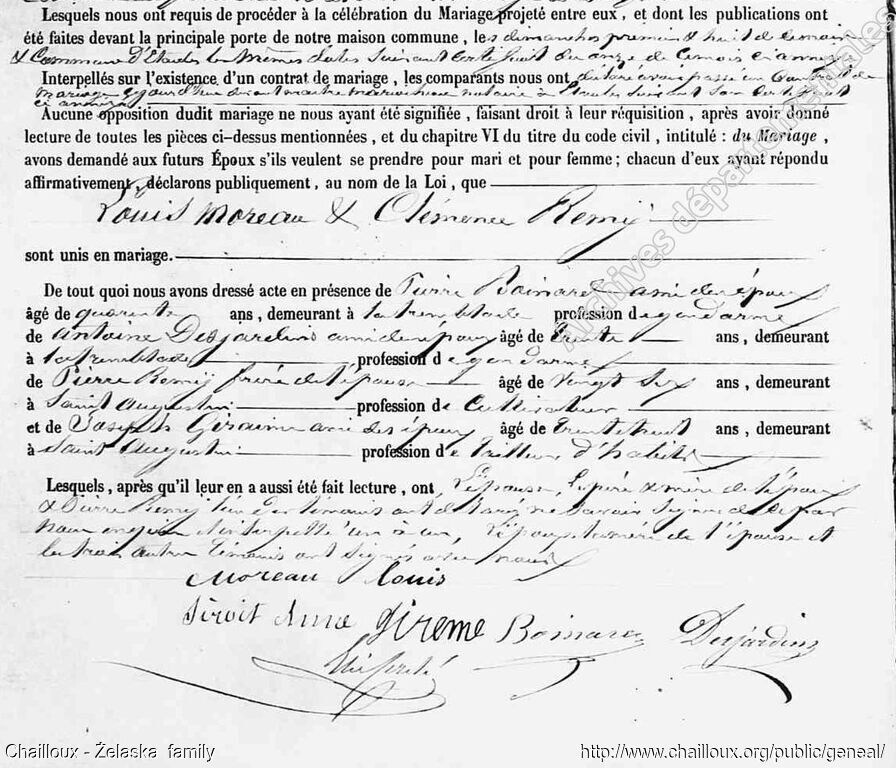 Lesquels nous ont requis de procéder à la célébration du Mariage projeté entre eux, et dont les publications ont
été faites devant la principale porte de notre maison commune, les dimanches premier & huit de ce mois
& Commune d'Etaules les mêmes dates suivant certificat du onze de ce mois ci annexé
Interpellés sur l'existence d'un contrat de mariage, les comparants nous ont déclaré avoir passé un Contrat de
mariage aujourd'hui devant maitre notaire à Etaules suivant son certificat
ci annexé
Aucune opposition dudit mariage ne nous ayant été signifiée, faisant droit à leur réquisition, après avoir donné
lecture de toutes les pièces ci-dessus mentionnées, et du chapitre VI du titre du code civil, intitulé : du Mariage,
avons demandé aux futurs Époux s'ils veulent se prendre pour mari et pour femme; chacun d'eux ayant répondu
affirmativement, déclarons publiquement, au nom de la Loi, que
Louis Moreau & Clémence Remij
sont unis en mariage.
De tout quoi nous avons dressé acte en présence de Pierre Boinard ami de l'époux
âgé de quarante ans, demeurant à la tremblade profession de gendarme
de Antoine Desjardins ami de l'époux âgé de trente ans, demeurant
à la tremblade profession de gendarme
de Pierre Remij frère de l'épouse âgé de vingt six ans, demeurant
à Saint Augustin profession de Cultivateur
et de Joseph Giraime ami des époux âgé de trente huit ans, demeurant
à Saint Augustin profession de tailleur d'habits
Lesquels, après qu'il leur en a aussi été fait lecture, ont, l'épouse, le père & mère de l'époux
& Pierre Remij l'un des témoins ont déclaré ne savoir signer de ce par
nous enquis & interpellé un à un, l'époux la mère de l'épouse et
les trois autres témoins ont signés avec nous
Moreau Louis
Siroit Anne Gireme Boinard Desjardins
Archives départementales
Chailloux - Želaska family http://www.chailloux.org/public/geneal/